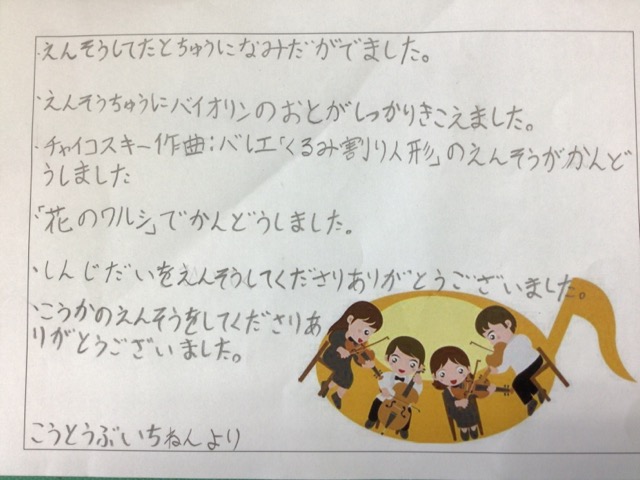 ・えんそうしてたとちゅうになみだがでました。
・えんそうちゅうにバイオリンのおとがしっかりきこえました。
・チャイコスキー作曲:バレエ「くるみ割り人形」のえんそうがかんど
うしました
・「花のワルシ」でかんどうしました。
・しんじだいをえんそうしてくださりありがとうございました。
・こうかのえんそうをしてくださりあ
りがとうございました。
こうとうぶいちねんより